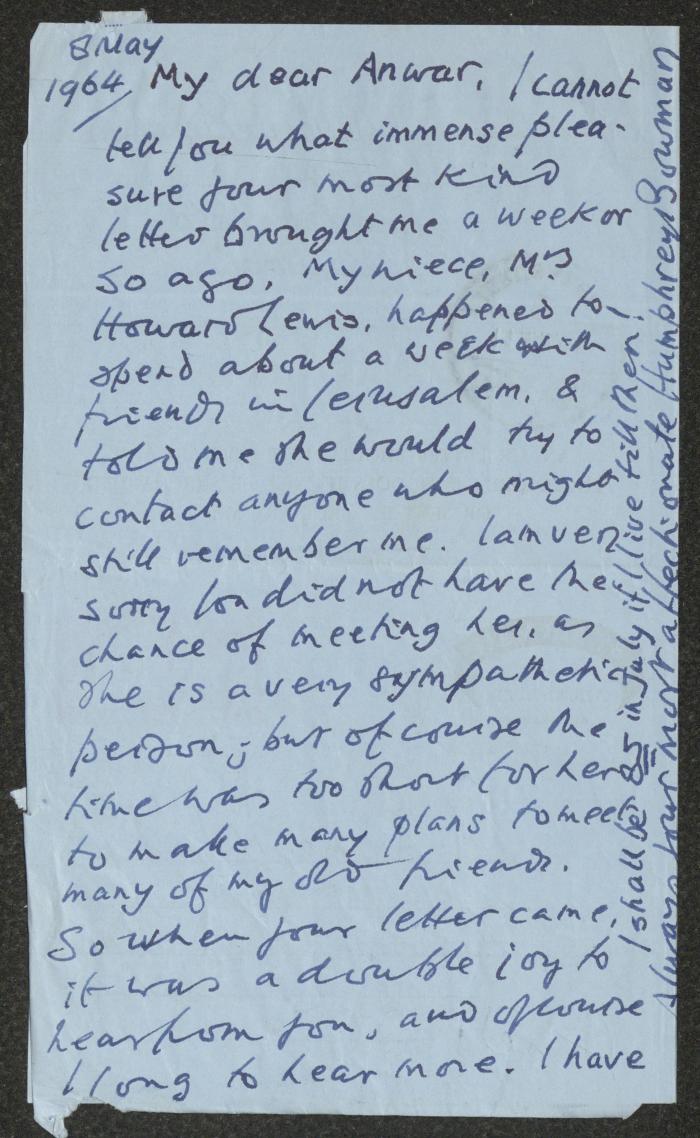 8 May
1964 My dear Anwar, I cannot
tell you what immense plea-
sure your most kind
letter brought me a week or
so ago. My niece, Mrs
Howard Lewis, happened to
spend about a week with
friends in Jerusalem, &
told me she would try to
contact anyone who might
still remember me. I am very
sorry you did not have the
chance of meeting her, as
she is a very sympathetic
person; but of course the
time was too short for her
to make many plans to meet
many of my old friends.
So when your letter came,
it was a double joy to
hear from you, and of course
I long to hear more. I have
I shall be 85 in July if I live till then!
Always your most affectionate Humphrey Bowman